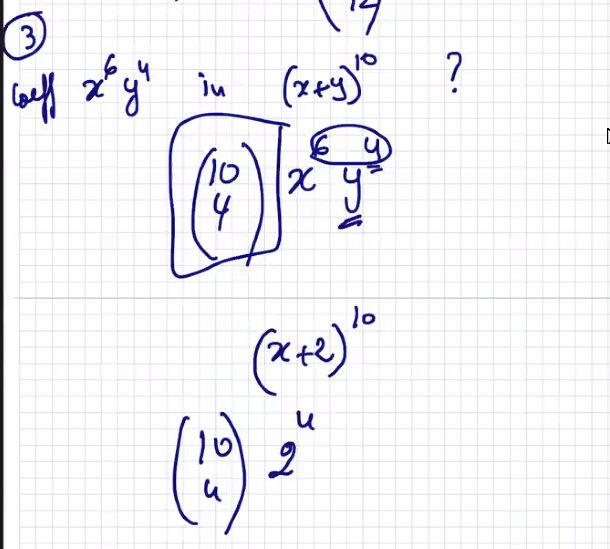 12)
③
coeff x^6 y^4 in (x+y)^10 ?
(10 4) x^6 y^4
(x+2)^10
(10 4) 2^4